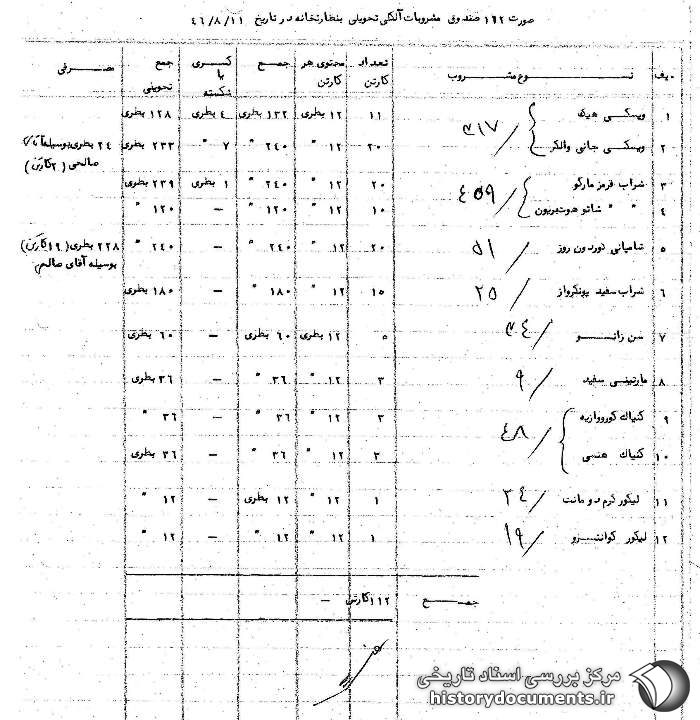 صورت ۱۱۲ صندوق مشروبات الکلی تحویلی بنظارتخانه در تاریخ ۴۶/۸/۱۱
ردیف نوع مشروب تعداد کارتن محتوی هر کارتن جمع کسری یا شکسته جمع تحویلی مصرفی
۱ ویسکی هیگ ۱۱ ۱۲ بطری ۱۳۲ بطری ۴ بطری ۱۲۸ بطری
۲ ویسکی جانی والکر ۳۱۷ ۲۰ ۱۲ " ۲۴۰ " ۷ " ۲۳۳ بطری ۲۴ بطری بوسیله آقای صالحی (۲ کارتن)
۳ شراب قرمز مارگو ۲۰ ۱۲ " ۲۴۰ " ۱ بطری ۲۳۹ بطری
۴ " " شاتو هوتبریون ۴۵۹ ۱۰ ۱۲ " ۱۲۰ " – ۱۲۰ "
۵ شامپانی دوردون روز ۵۱ ۲۰ ۱۲ " ۲۴۰ " – ۲۴۰ " ۲۲۸ بطری (۱۹ کارتن) بوسیله آقای صالحی
۶ شراب سفید ۲۵ ۱۵ ۱۲ " ۱۸۰ " – ۱۸۰ بطری
۷ سن زانو ۳۴ ۵ ۱۲ بطری ۶۰ بطری – ۶۰ بطری
۸ مارتینی سفید ۹ ۳ ۱۲ " ۳۶ " – ۳۶ بطری
۹ کنیاک کوروازیه ۳ ۱۲ " ۳۶ " – ۳۶ "
۱۰ کنیاک هنسی ۴۸ ۳ ۱۲ " ۳۶ " – ۳۶ بطری
۱۱ لیکور کرم دو مانت ۳۴ ۱ ۱۲ " ۱۲ بطری – ۱۲ "
۱۲ لیکور کوانترو ۱۹ ۱ ۱۲ " ۱۲ " – ۱۲ "
جمع ۱۱۲ کارتن –
مرکز بررسی اسناد تاریخی
historydocuments.ir